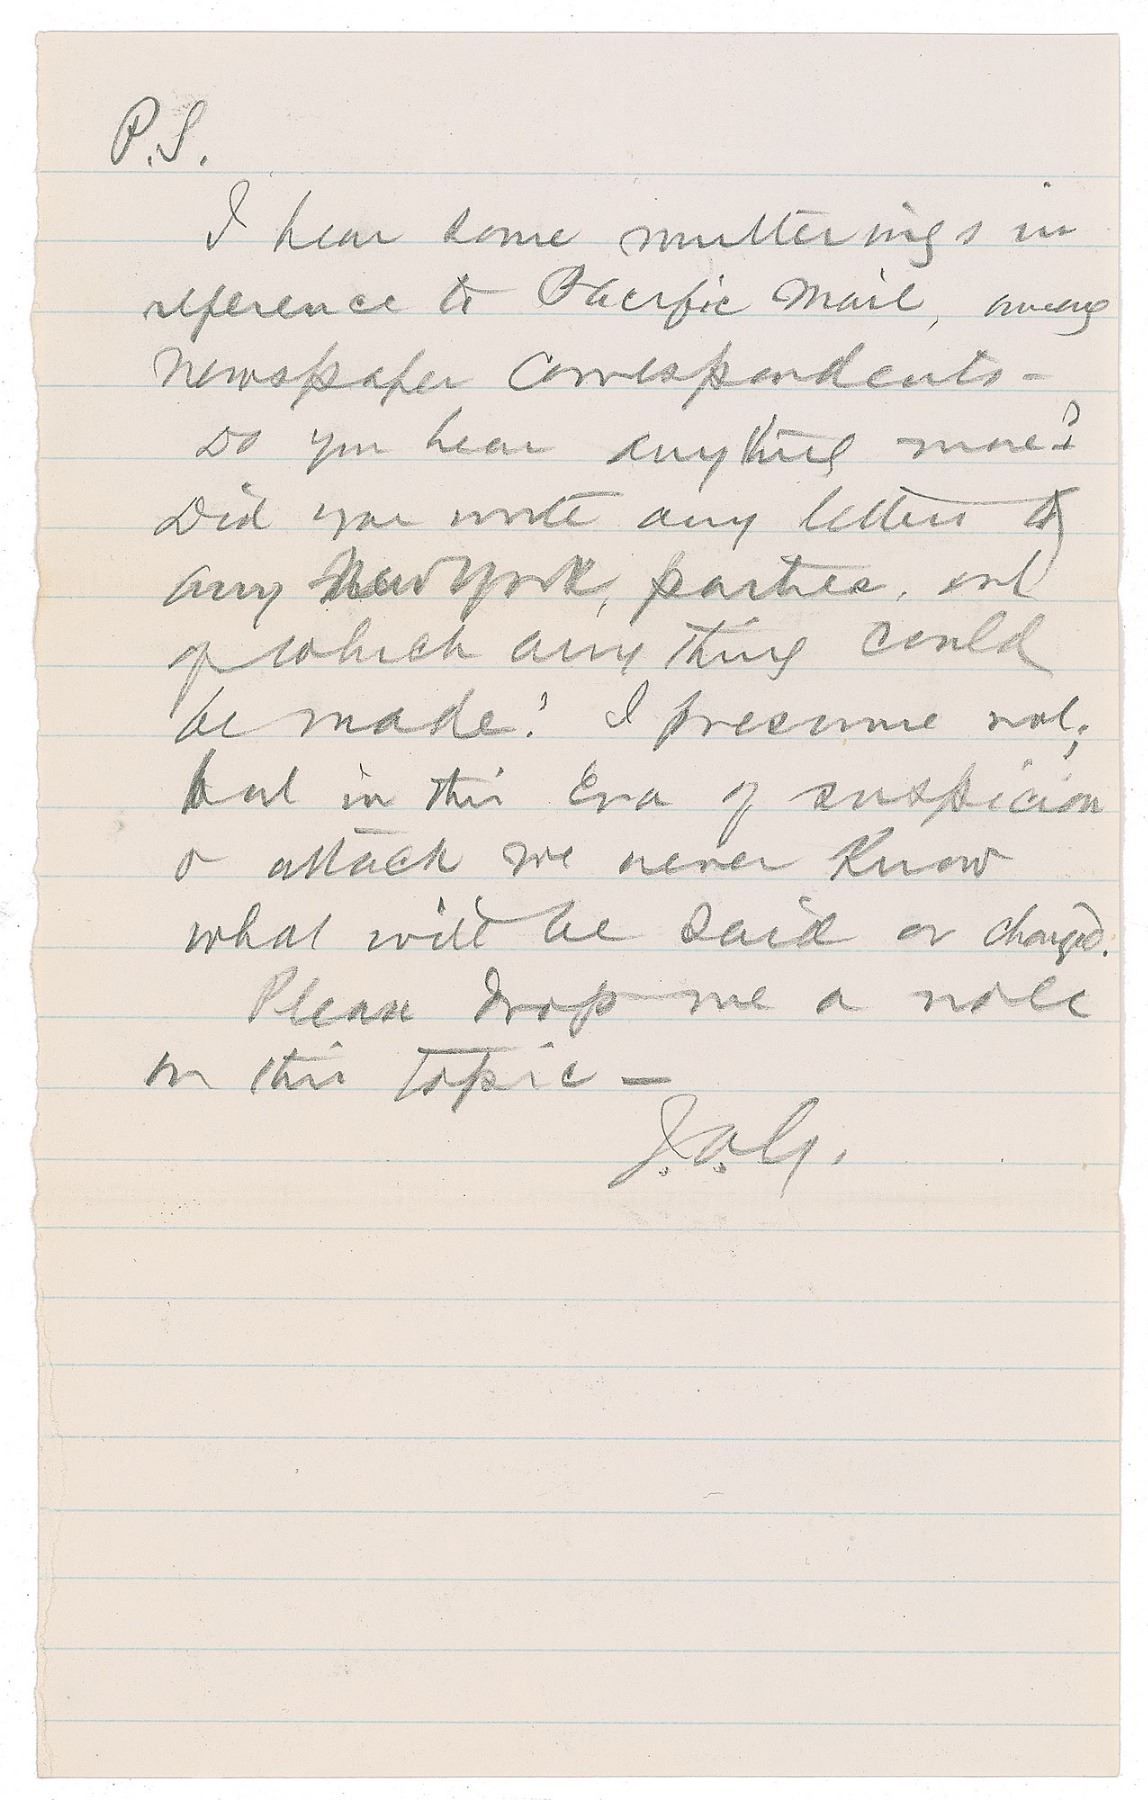 P.S.
I hear some mutterings in
reference to Pacific Mail, among
Newspaper Correspondents -
Do you hear anything more?
Did you write any letters to
any New York, parties, out
of which anything could
be made? I presume not;
but in this Era of suspicion
& attack we never Know
what will be said or charged.
Please drop me a note
on this topic —
J.A.G.